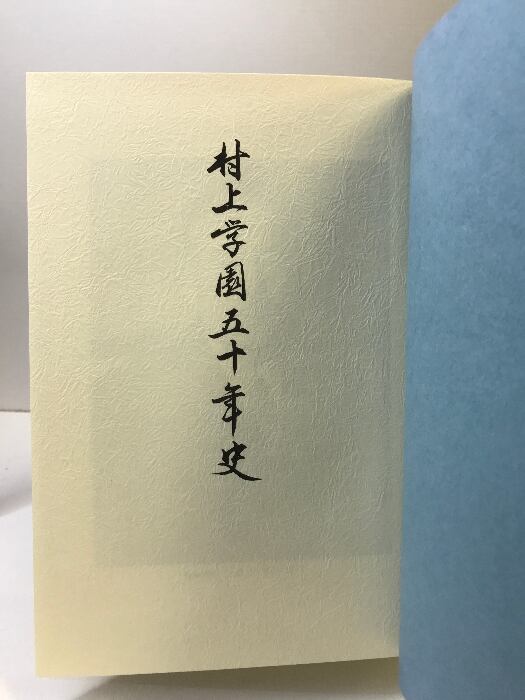 村上学園五十年史